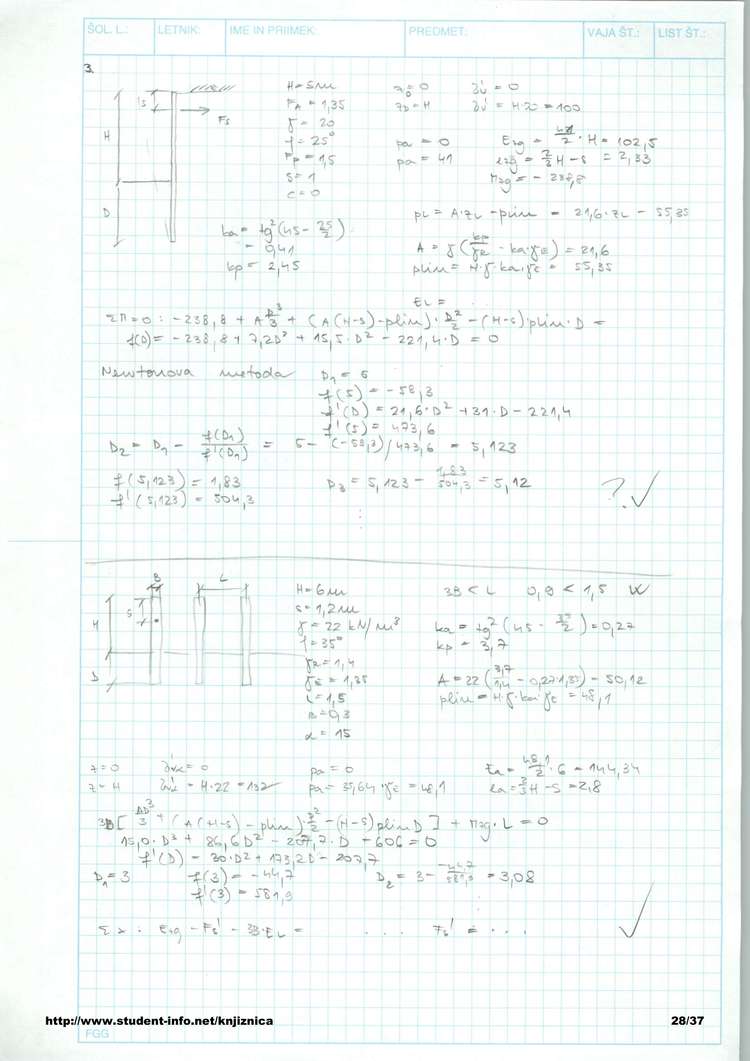 ŠOL. L.: LETNIK: IME IN PRIIMEK: PREDMET: VAJA ŠT.: LIST ŠT.:
3.
H = 5m
F_A = 1,35
γ = 20
f = 25°
F_P = 1,5
s = 1
c = 0
H
D
s
F_s
z_0 = 0 σv' = 0
z_D = H σv' = H·20 = 100
pa = 0
pa = 41
Ezg = 41/2 · H = 102,5
ezg = 2/3 H - s = 2,33
Mzg = - 238,8
ka = tg²(45 - 25/2)
= 0,41
kp = 2,45
pL = A·zL - plim = 21,6·zL - 55,35
A = γ(kp/γR - ka·γE) = 21,6
plim = H·γ·ka·γE = 55,35
EL =
ΣM=0 : -238,8 + A D³/3 + (A(H-s)-plim)· D²/2 - (H-s)plim·D =
f(D) = - 238,8 + 7,2D³ + 15,5·D² - 221,4·D = 0
Newtonova metoda D1 = 5
f(5) = - 58,3
f'(D) = 21,6·D² + 31·D - 221,4
f'(5) = 473,6
D2 = D1 - f(D1)/f'(D1) = 5 - (-58,3)/473,6 = 5,123
f(5,123) = 1,83
f'(5,123) = 504,3
D3 = 5,123 - 1,83/504,3 = 5,12
?.✓
B L
s
H
D
H = 6m
s = 1,2m
γ = 22 kN/m³
f = 35°
γR = 1,4
γE = 1,35
L = 1,5
B = 0,3
α = 15
3B < L 0,9 < 1,5
ka = tg²(45 - 35/2) = 0,27
kp = 3,7
A = 22(3,7/1,4 - 0,27·1,35) = 50,12
plim = H·γ·ka·γE = 48,1
z = 0 σvz' = 0 pa = 0
z = H σvz' = H·22 = 132 pa = 35,64·γE = 48,1
Ea = 48,1/2 · 6 = 144,34
ea = 2/3 H - s = 2,8
3B[ AD³/3 + (A(H-s) - plim) D²/2 - (H-s)plim D ] + Mzg·L = 0
15,0·D³ + 86,6D² - 207,7·D - 606 = 0
f'(D) = 30·D² + 173,2D - 207,7
D1 = 3 f(3) = - 44,7
f'(3) = 581,9
D2 = 3 - -44,7/581,9 = 3,08
Σx : Ezg - Fs' - 3B·EL = . . . Fs' = . . .
✓
http://www.student-info.net/knjiznica 28/37
FGG